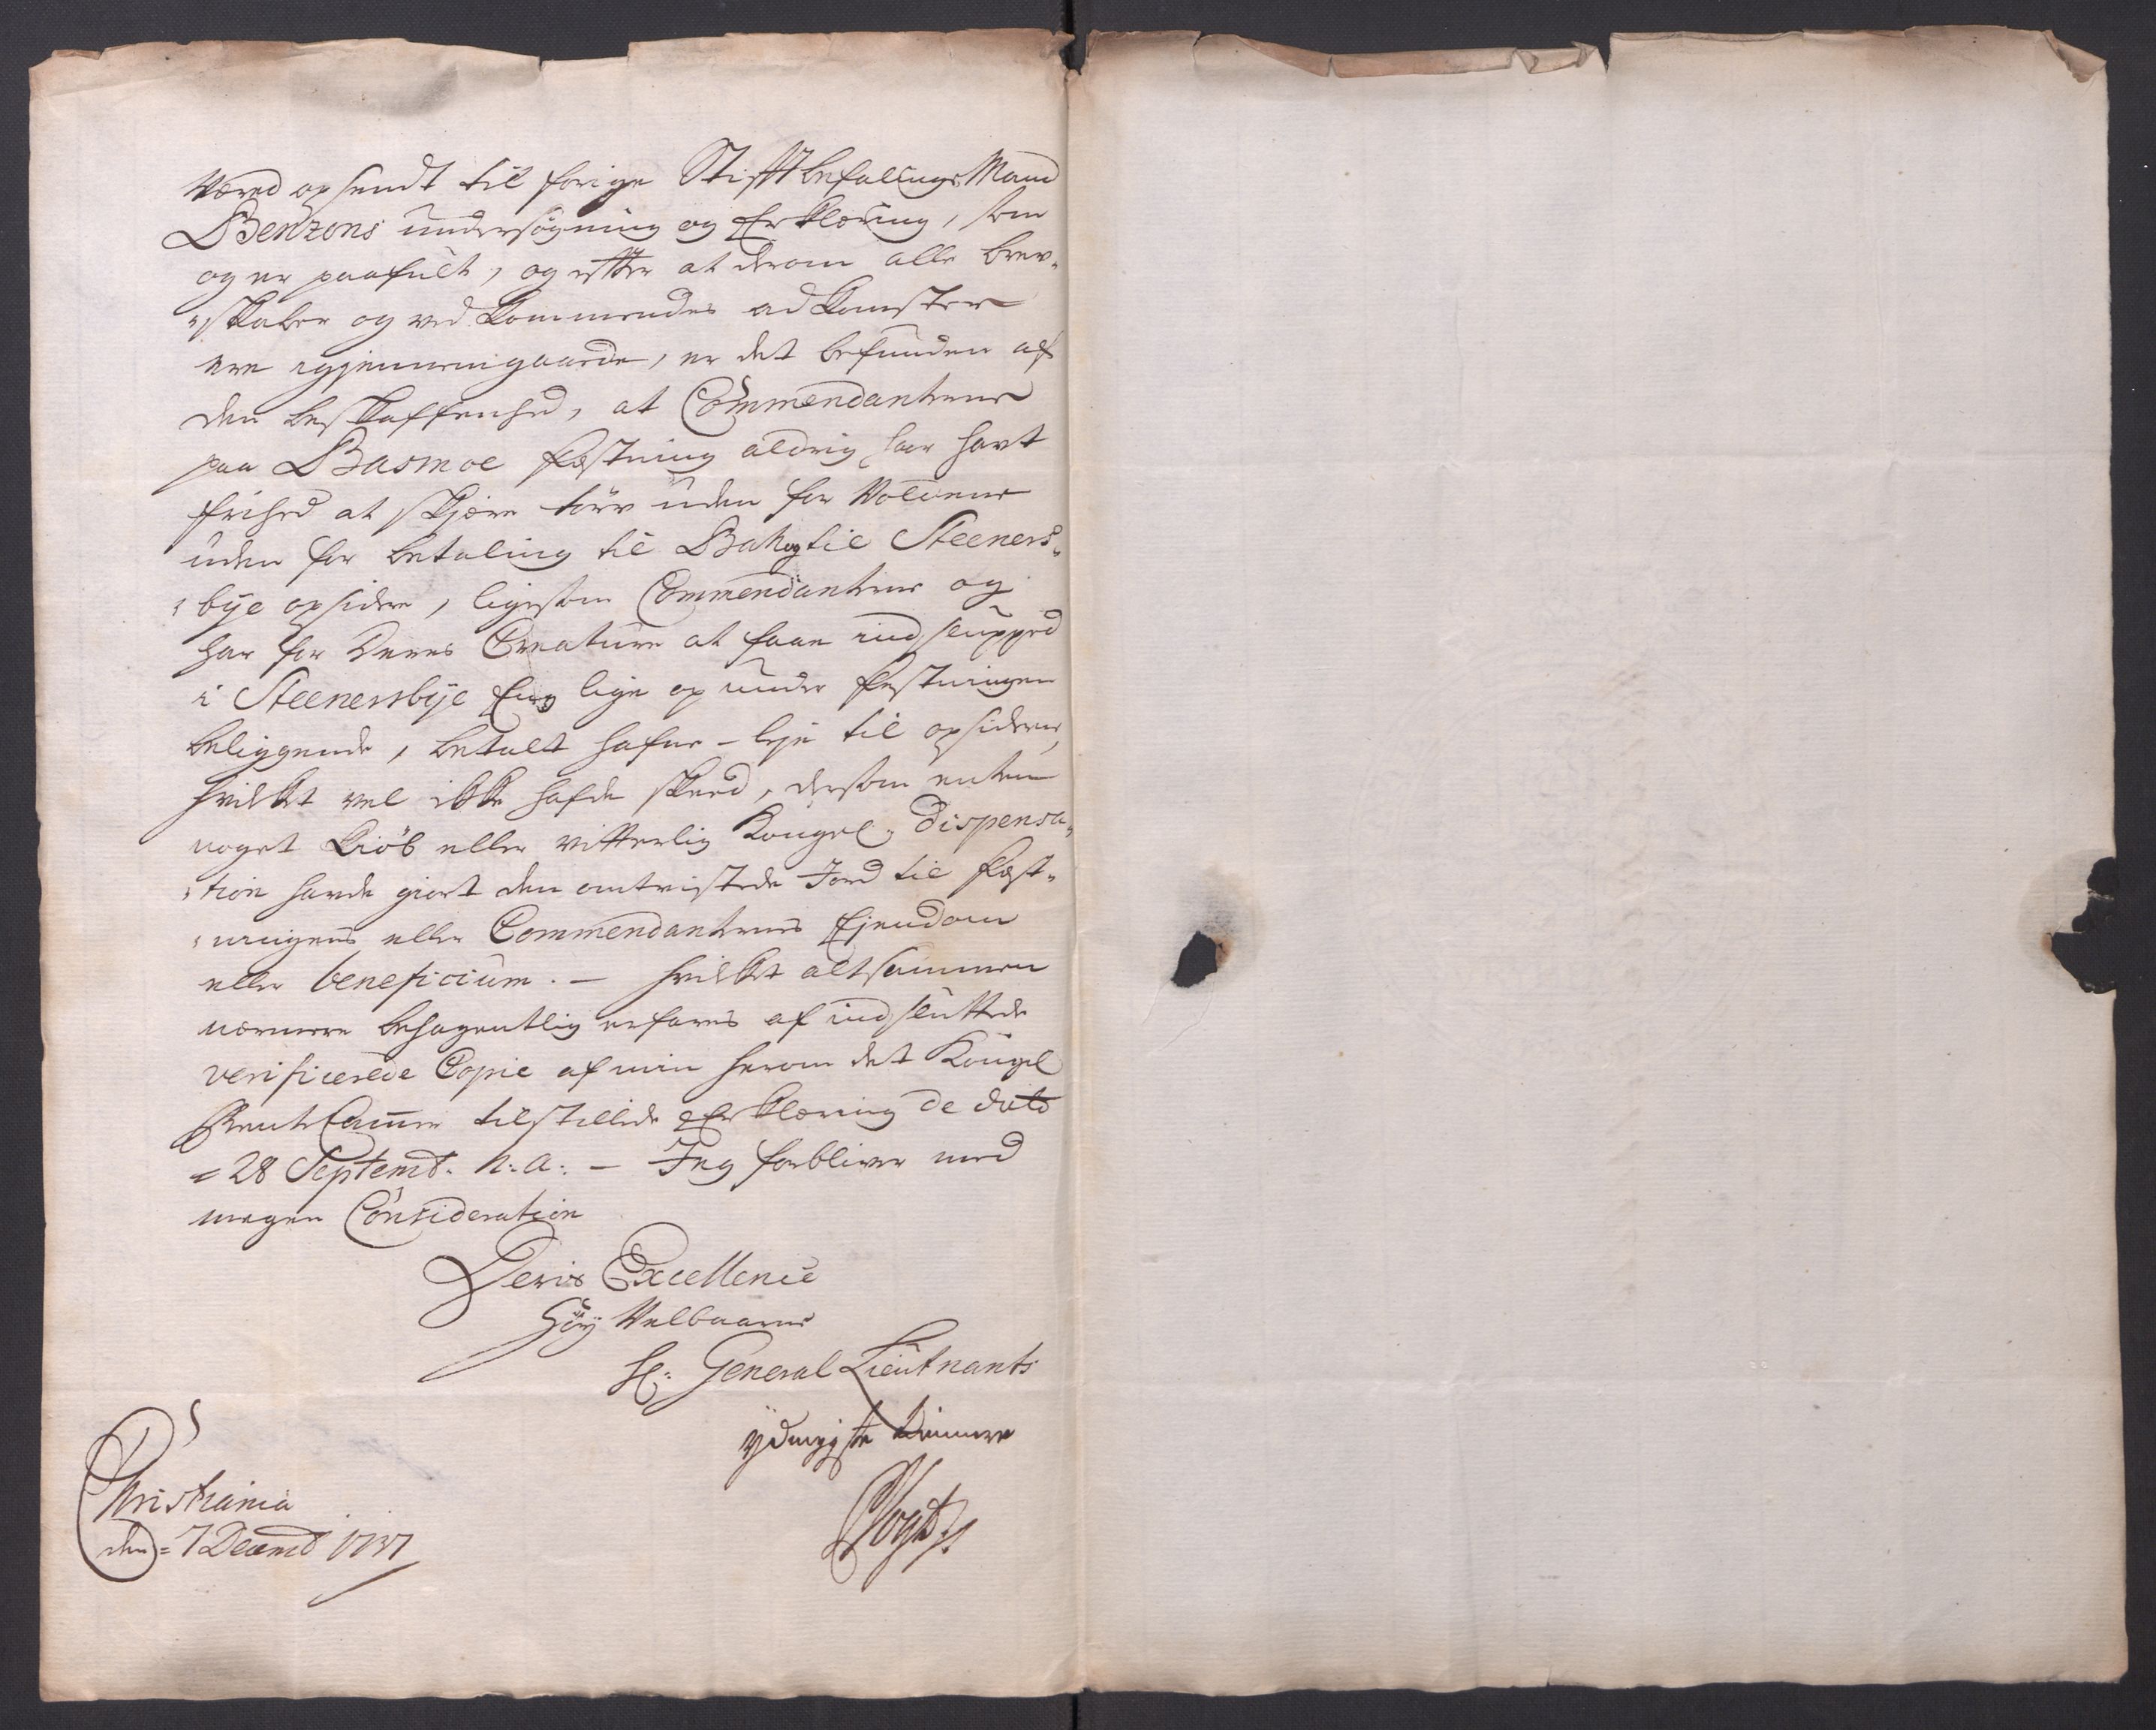 Vered opsendt til forige StifftbefalingsMand
Benzons undersøgning og Erklæring, som
og er paafult, og efter at derom alle brev-
skaber og ved kommendes adkomster
ere igjennemgaaede, er det befunden af
den beskaffenhed, at Commendanterne
paa Basmoe fæstning aldrig har havt
frihed at skjære törv uden for Voldene
uden for betaling til Bakog til Steeners-
bÿe opsidere, ligesom Commendanterne og
har for deres Creature at faae indslupped
i Steenersbÿe Eng lige op under festningen
beliggende, betalt hafne-leje til opsiderne,
hvilket vel ikke hafde skeed, dersom enten
noget Kiöb eller vitterlig Kongel: dispensa-
tion havde giort den omtvistede Jord til fæst-
ningens eller Commendanternes Ejendom
eller beneficium. – hvilket altsammen
nærmere behagentlig erfares af indsluttede
verificerede Copie af min herom det Kongel
RenteCammer tilstillede Erklæring de dato
28 Septemb. h: a: – Jeg forbliver med
megen Consideration
Deris Excellence
Höÿ Velbaarne
Hr: General Lieutnants
ÿdmygste tienere
Vogt
Christiania
den = 7 Decemb 1737